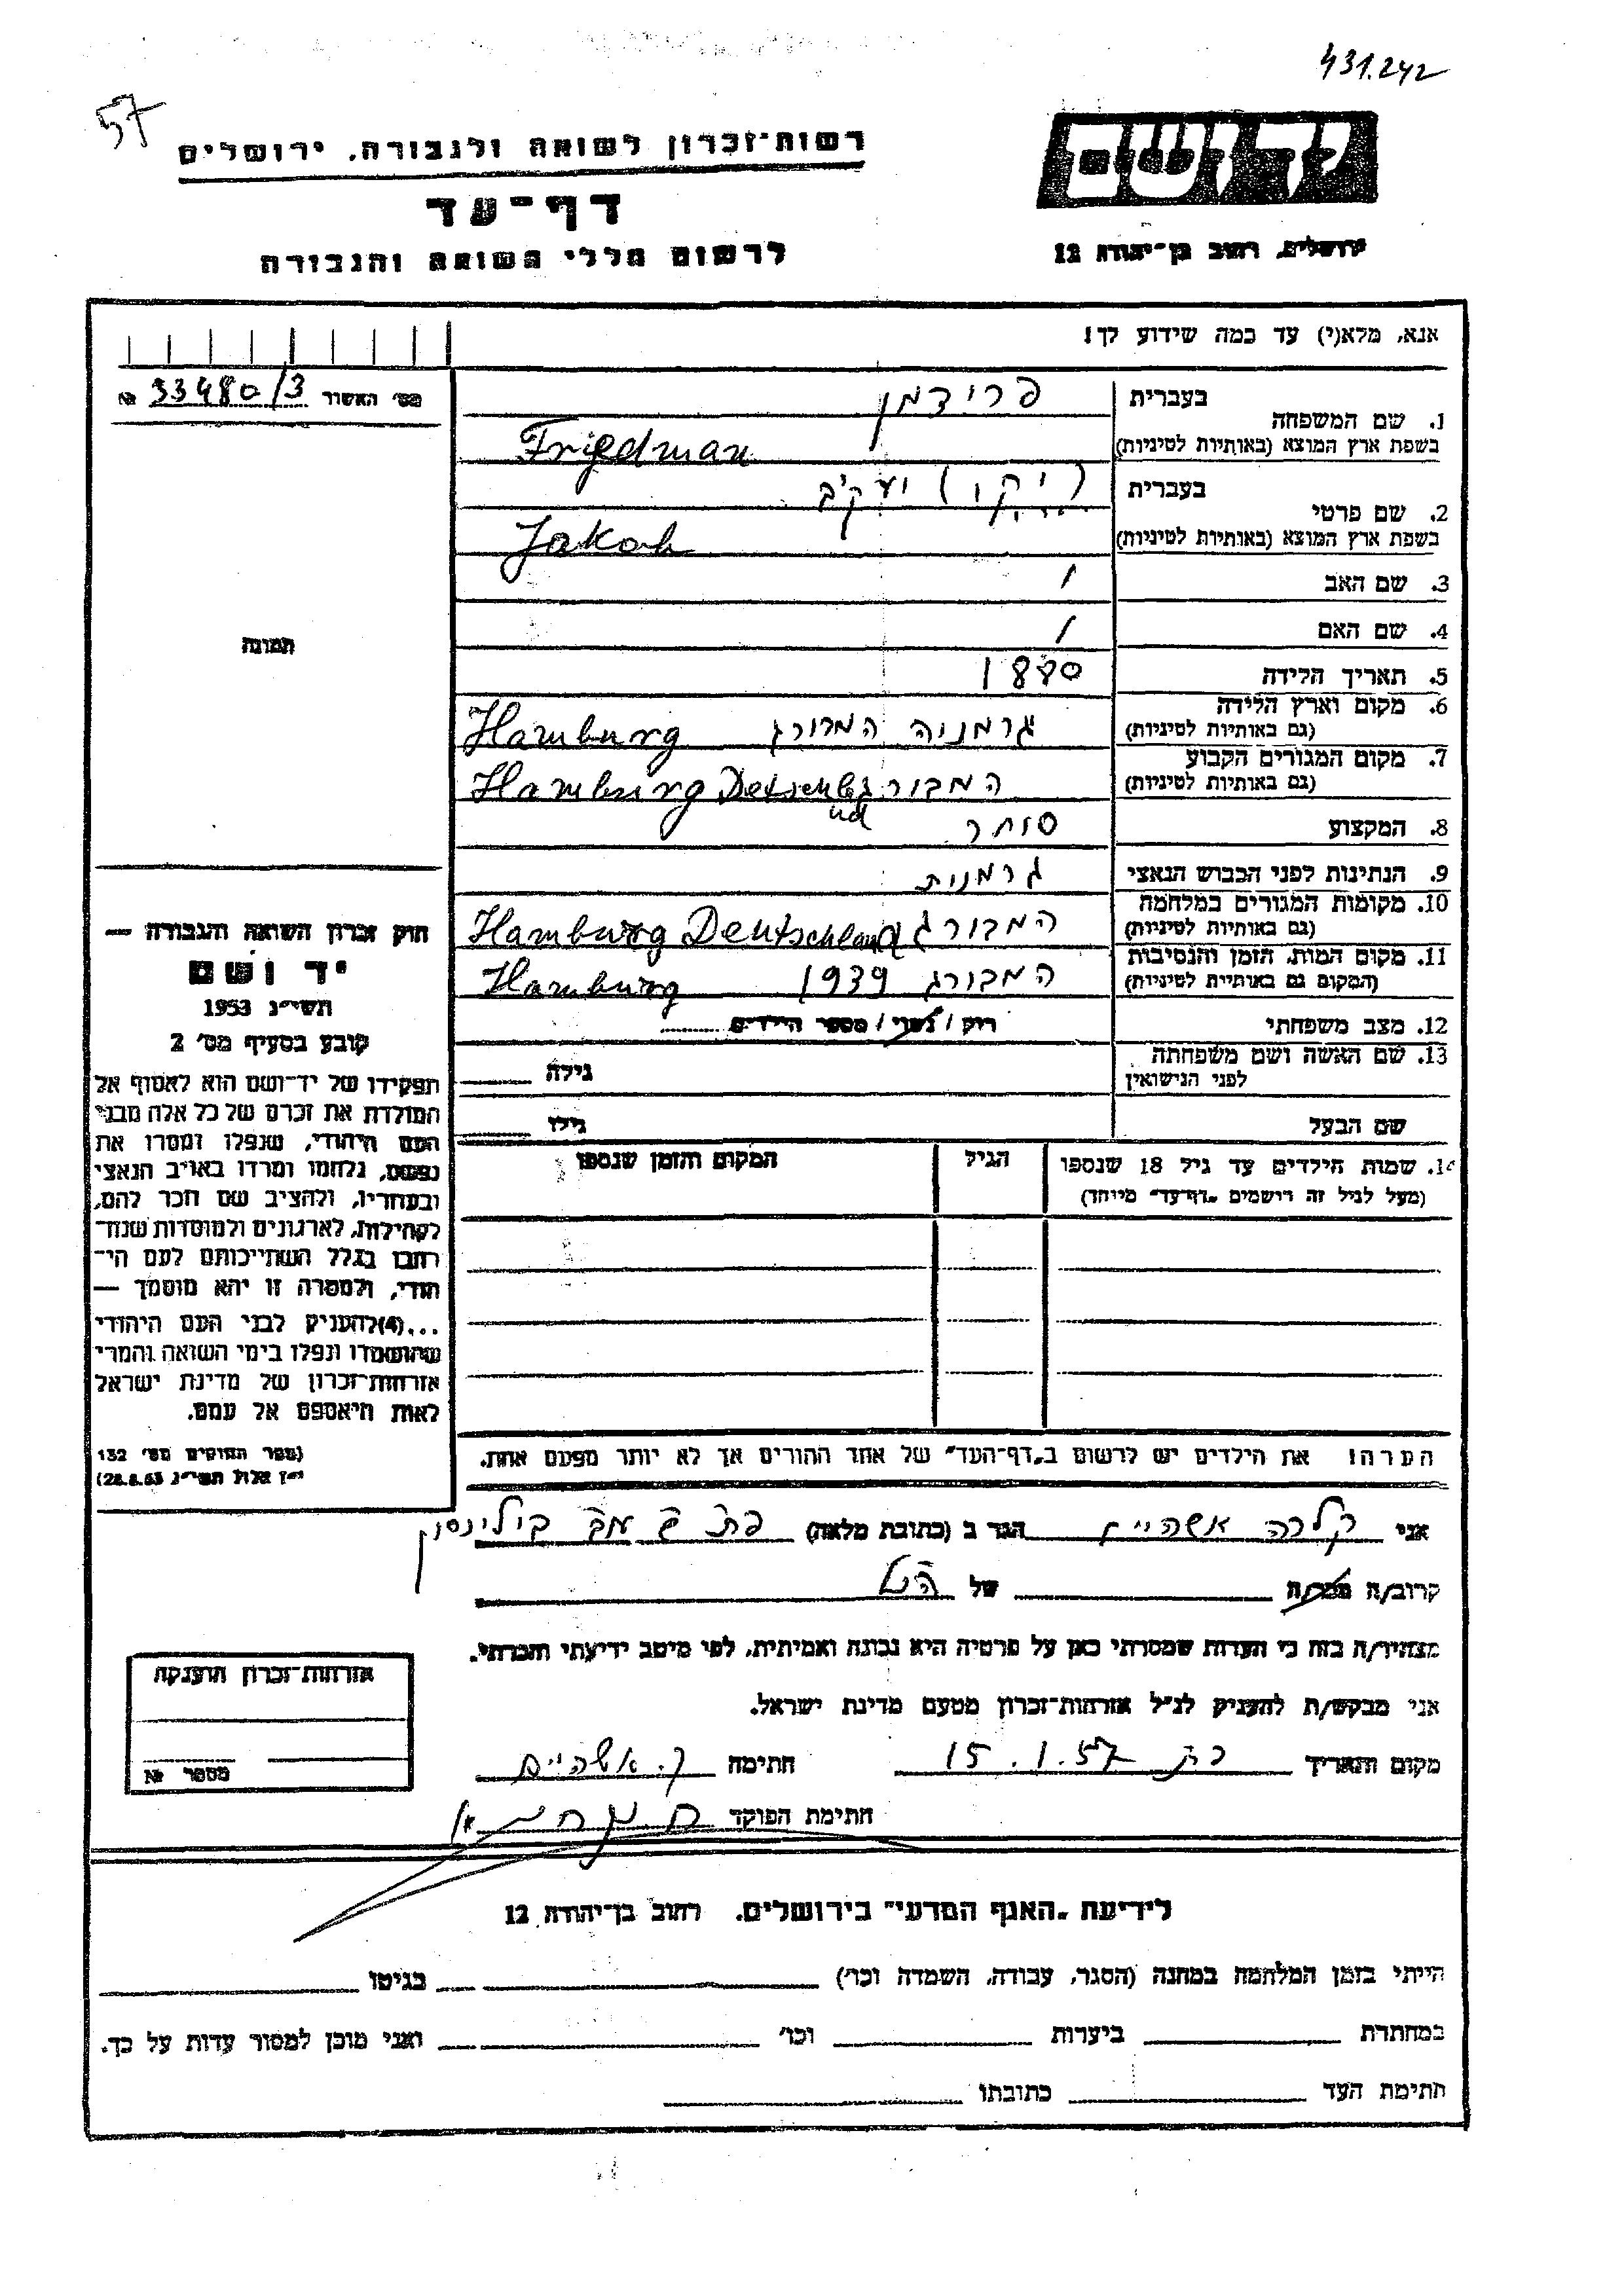 431.242
57
יד ושם
רשות־זכרון לשואה ולגבורה, ירושלים
דף־עד
ירושלים, רחוב בן־יהודה 12
לרשום חללי השואה והגבורה
אנא, מלא(י) עד כמה שידוע לך!
מס׳ האשור 33480/3 №
בעברית פרידמן
1. שם המשפחה
בשפת ארץ המוצא (באותיות לטיניות) Friedman
בעברית (יקו) יעקב
2. שם פרטי
בשפת ארץ המוצא (באותיות לטיניות) Jakob
3. שם האב /
4. שם האם /
תמונה
5. תאריך הלידה 1880
6. מקום וארץ הלידה גרמניה המבורג Hamburg
(גם באותיות לטיניות)
7. מקום המגורים הקבוע המבורג Hamburg
(גם באותיות לטיניות)
8. המקצוע סוחר
9. הנתינות לפני הכבוש הנאצי גרמנית
10. מקומות המגורים במלחמה המבורג Hamburg Deutschland
(גם באותיות לטיניות)
11. מקום המות, הזמן והנסיבות המבורג 1939 Hamburg
(המקום גם באותיות לטיניות)
12. מצב משפחתי רוק / נשוי / מספר הילדים
13. שם האשה ושם משפחתה גילה
לפני הנישואין
שם הבעל גילו
14. שמות הילדים עד גיל 18 שנספו הגיל המקום והזמן שנספו
(מעל לגיל זה רישמים „דף־עד״ מיוחד)
הערה: את הילדים יש לרשום ב„דף־העד״ של אחד ההורים אך לא יותר מפעם אחת.
חוק זכרון השואה והגבורה —
יד ושם
תשי״ג 1953
קובע בסעיף מס׳ 2
תפקידו של יד־ושם הוא לאסוף אל
המולדת את זכרם של כל אלה מבני
העם היהודי, שנפלו ומסרו את
נפשם, נלחמו ומרדו באויב הנאצי
ובעוזריו, ולהציב שם וזכר להם,
לקהילות, לארגונים ולמוסדות שנח־
רבו בגלל השתייכותם לעם הי־
הודי, ולמטרה זו יהא מוסמך —
...(4) להעניק לבני העם היהודי
שהושמדו ונפלו בימי השואה והמרי
אזרחות־זכרון של מדינת ישראל
לאות היאספם אל עמם.
(ספר החוקים מס׳ 132
י״ז אלול תשי״ג 28.8.53)
אני קלרה אשהיים הגר ב (כתובת מלאה) פת בילינסון
קרוב/ה מכר/ה של
מצהיר/ה בזה כי העדות שמסרתי כאן על פרטיה היא נכונה ואמיתית, לפי מיטב ידיעתי והכרתי.
אני מבקש/ת להעניק לנ״ל אזרחות־זכרון מטעם מדינת ישראל.
מקום ותאריך פת 15.1.57 חתימה ק. אשהיים
חתימת הפוקד
אזרחות־זכרון הוענקה
מספר №
לידיעת „האגף המדעי״ בירושלים, רחוב בן־יהודה 12
הייתי בזמן המלחמה במחנה (הסגר, עבודה, השמדה וכו׳) בגיטו
במחתרת ביערות וכו׳ ואני מוכן למסור עדות על כך.
חתימת העד כתובתו